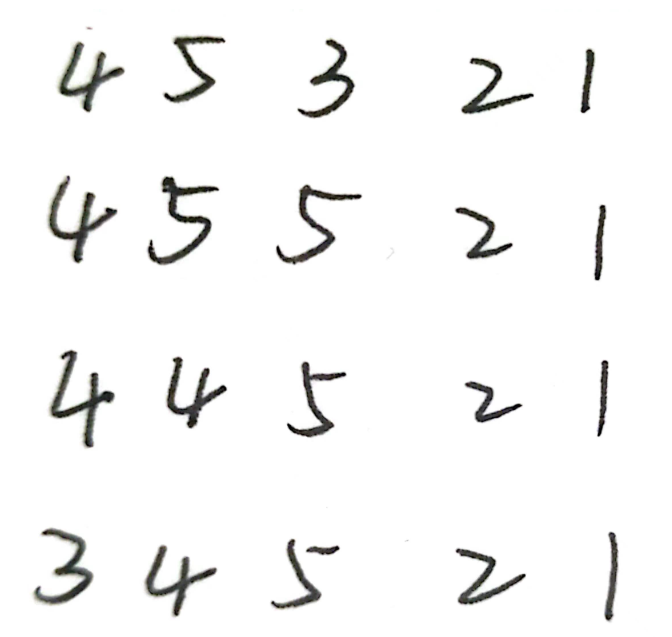 4 5 3 2 1
4 5 5 2 1
4 4 5 2 1
3 4 5 2 1